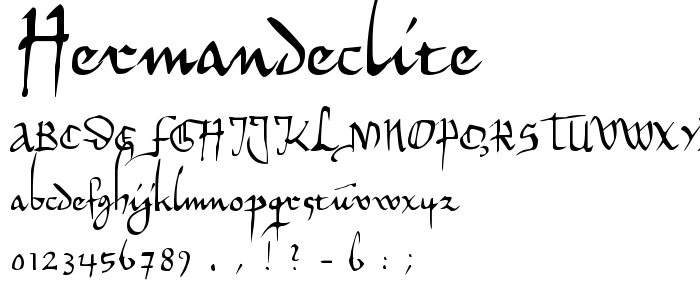 Hermandeclite
ABCDEFGHIJKLMNOPQRSTUVWXY
abcdefghijklmnopqrstuvwxyz
0123456789 . , ! ? - 6 : ;